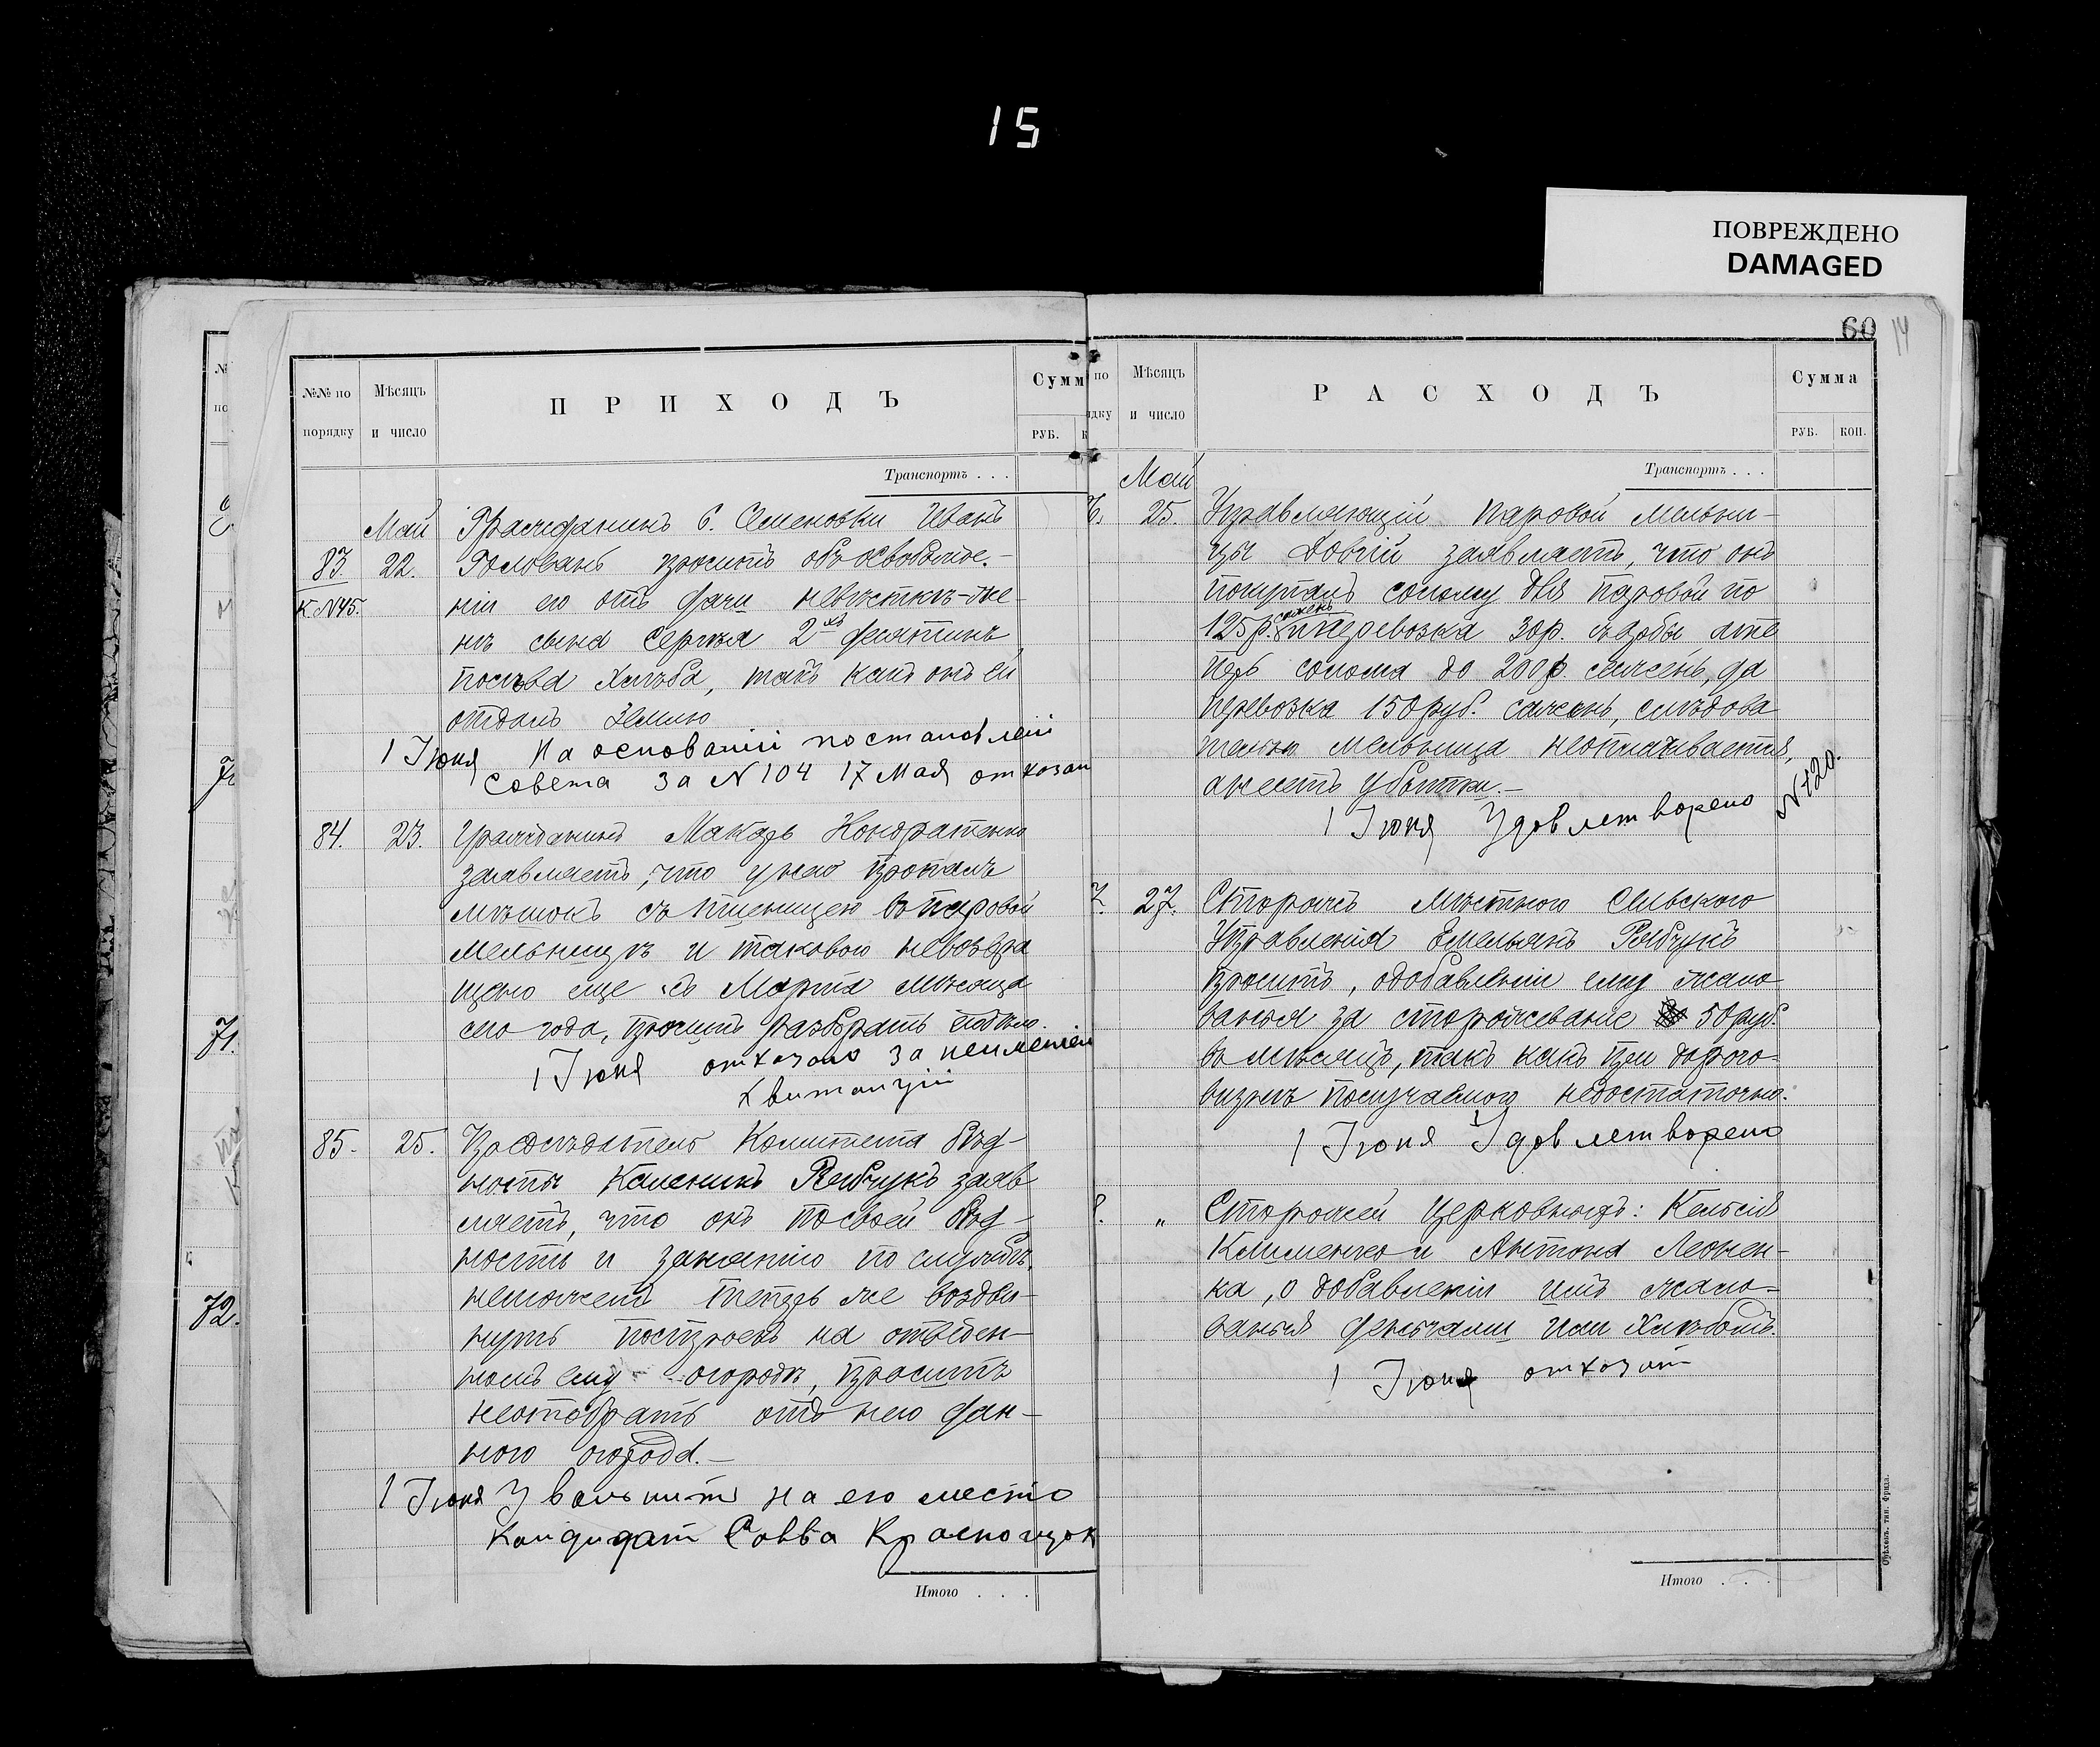 15
ПОВРЕЖДЕНО
DAMAGED
60
14
№№ по порядку
Мѣсяцъ и число
ПРИХОДЪ
Сумм
РУБ.
Транспортъ . . .
Май Гражданинъ с. Семеновки Иванъ
83. 22. Головань проситъ объ освобожде-
К №45. ніи его отъ дачи невѣсткѣ-же-
нѣ сына Сергѣя 2хъ десятинъ
посѣва хлѣба, такъ какъ онъ ей
отдалъ землю
1 Июня На основаніи постановленій
Совета за N 104 17 Мая отказан
84. 23. Гражданинъ Макаръ Кондратенко
заявляетъ, что у него пропалъ
мѣшокъ съ пшеницею въ паровой
мельницѣ и таковою невозвра
щено еще съ Марта мѣсяца
сего года, проситъ разобрать
1 Июня отказано за неимением
квитанции
85. 25. Предсѣдатель Комитета бѣд-
ноты Каленикъ Рябчукъ заяв
ляетъ, что онъ по своей бѣд-
ности и занятію по службѣ,
неможетъ теперь же воздви-
нуть построекъ на отведен-
номъ ему огородѣ, проситъ
неотобрать отъ него дан-
ного огорода.—
1 Июня Увольнит на его место
кандидат Савва
Итого . . .
по
ядку
Мѣсяцъ и число
РАСХОДЪ
Сумма
РУБ. КОП.
Транспортъ . . .
Май
6. 25. Управляющій паровой мельни-
цы Довгій заявляетъ, что онъ
покупалъ солому для паровой по
125 р. сажень перевозка 30 р. атe
перь солома до 200 р. сажень, да
перевозка 150 руб. сажень, слѣдова
тельно мельница неоплачивается,
анесетъ убытки.—
1 Июня Удовлетворено
N 120.
7. 27. Сторожъ мѣстного Сельского
Управленія Емельянъ Рябчукъ
проситъ, одобавленіи ему жало
ванья за сторожеваніе 50 руб.
въ мѣсяцъ, такъ какъ при дорого-
визнѣ получаемого недостаточно.
1 Июня Удовлетворено
8. „ Сторожей церковныхъ: Кельсія
Клименко и Антона Леонен-
ка, о добавленіи имъ жало-
ванья деньгами или хлѣбомъ.
1 Июня отказат
Итого . . .
72.